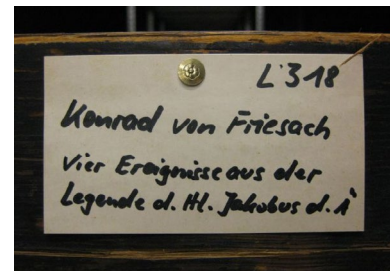 L 318
Konrad von Friesach
Vier Ereignisse aus der
Legende d. Hl. Jakobus d. Ä